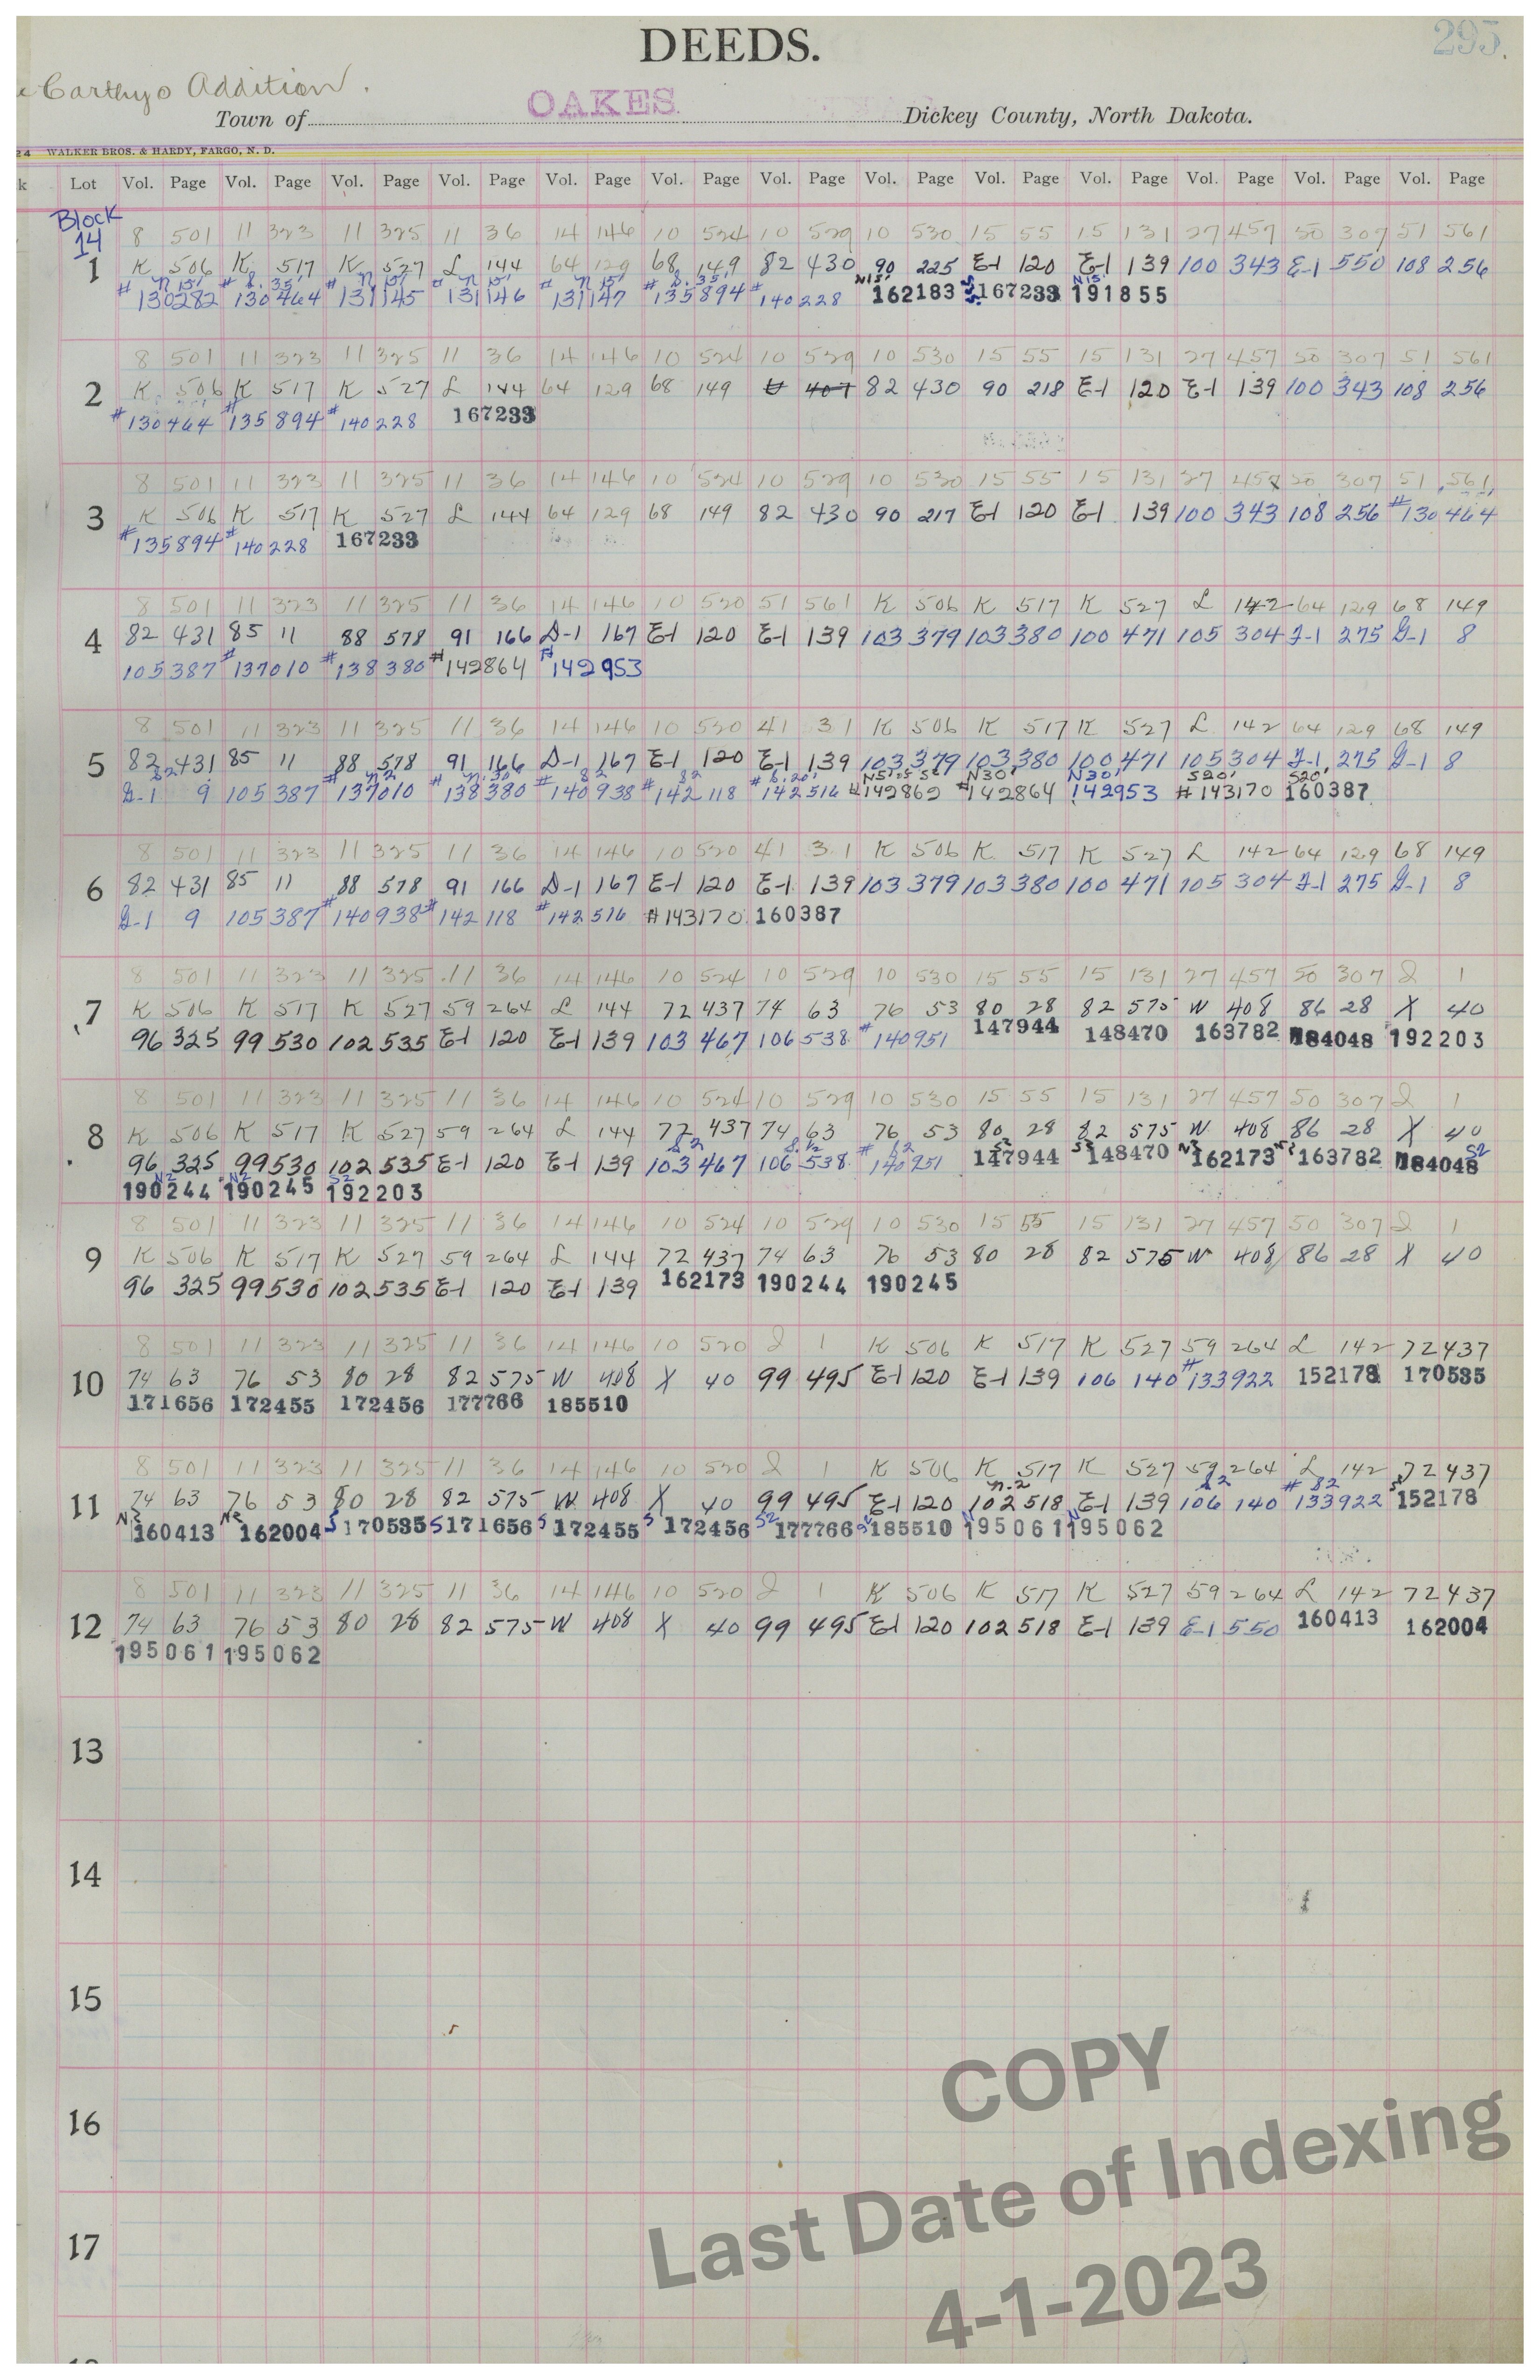 DEEDS.
295.
Carthys Addition.
Town of OAKES Dickey County, North Dakota.
24 WALKER BROS. & HARDY, FARGO, N. D.
k Lot Vol. Page Vol. Page Vol. Page Vol. Page Vol. Page Vol. Page Vol. Page Vol. Page Vol. Page Vol. Page Vol. Page Vol. Page Vol. Page
Block
14
8 501 11 323 11 325 11 36 14 146 10 524 10 529 10 530 15 55 15 131 27 457 50 307 51 561
1 K 506 K 517 K 527 L 144 64 129 68 149 82 430 90 225 E-1 120 E-1 139 100 343 E-1 550 108 256
N 15' S. 35' N 15' N 15' N 15' S. 35' N15' S. N15'
#130282 #130464 #131145 #131146 #131147 #135894 #140228 162183 167233 191855
8 501 11 323 11 325 11 36 14 146 10 524 10 529 10 530 15 55 15 131 27 457 50 307 51 561
2 K 506 K 517 K 527 L 144 64 129 68 149 U 407 82 430 90 218 E-1 120 E-1 139 100 343 108 256
#130464 #135894 #140228 167233
8 501 11 323 11 325 11 36 14 146 10 524 10 529 10 530 15 55 15 131 27 457 50 307 51 561
3 K 506 K 517 K 527 L 144 64 129 68 149 82 430 90 217 E-1 120 E-1 139 100 343 108 256 #130464
#135894 #140228 167233
8 501 11 323 11 325 11 36 14 146 10 520 51 561 K 506 K 517 K 527 L 142 64 129 68 149
4 82 431 85 11 88 578 91 166 D-1 167 E-1 120 E-1 139 103 379 103 380 100 471 105 304 J-1 275 G-1 8
105 387 #137010 #138380 #142864 #142953
8 501 11 323 11 325 11 36 14 146 10 520 41 31 K 506 K 517 K 527 L 142 64 129 68 149
5 82 431 85 11 88 578 91 166 D-1 167 E-1 120 E-1 139 103 379 103 380 100 471 105 304 J-1 275 G-1 8
S2 N2 N. 30' S2 S2 S. 20' N5' of S2 N30' N30' S20' S20'
G-1 9 105 387 #137010 #138380 #140938 #142118 #142516 #142862 #142864 142953 #143170 160387
8 501 11 323 11 325 11 36 14 146 10 520 41 31 K 506 K 517 K 527 L 142 64 129 68 149
6 82 431 85 11 88 578 91 166 D-1 167 E-1 120 E-1 139 103 379 103 380 100 471 105 304 J-1 275 G-1 8
G-1 9 105 387 #140938 #142118 #142516 #143170 160387
8 501 11 323 11 325 11 36 14 146 10 524 10 529 10 530 15 55 15 131 27 457 50 307 2 1
7 K 506 K 517 K 527 59 264 L 144 72 437 74 63 76 53 80 28 82 575 W 408 86 28 X 40
96 325 99 530 102 535 E-1 120 E-1 139 103 467 106 538 #140951 147944 148470 163782 184048 192203
8 501 11 323 11 325 11 36 14 146 10 524 10 529 10 530 15 55 15 131 27 457 50 307 2 1
8 K 506 K 517 K 527 59 264 L 144 72 437 74 63 76 53 80 28 82 575 W 408 86 28 X 40
S2 S. 1/2 S2 S2 S2 N2 N2 S2
96 325 99 530 102 535 E-1 120 E-1 139 103 467 106 538 #140951 147944 148470 162173 163782 184048
N2 N2 S2
190244 190245 192203
8 501 11 323 11 325 11 36 14 146 10 524 10 529 10 530 15 55 15 131 27 457 50 307 2 1
9 K 506 K 517 K 527 59 264 L 144 72 437 74 63 76 53 80 28 82 575 W 408 86 28 X 40
96 325 99 530 102 535 E-1 120 E-1 139 162173 190244 190245
8 501 11 323 11 325 11 36 14 146 10 520 2 1 K 506 K 517 K 527 59 264 L 142 72 437
10 74 63 76 53 80 28 82 575 W 408 X 40 99 495 E-1 120 E-1 139 106 140 #133922 152178 170535
171656 172455 172456 177766 185510
8 501 11 323 11 325 11 36 14 146 10 520 2 1 K 506 K 517 K 527 59 264 L 142 72 437
N.2 S2 S2 S
11 74 63 76 53 80 28 82 575 W 408 X 40 99 495 E-1 120 102 518 E-1 139 106 140 #133922 152178
N2 N2 S S S S S2 S2 N N
160413 162004 170535 171656 172455 172456 177766 185510 195061 195062
8 501 11 323 11 325 11 36 14 146 10 520 2 1 K 506 K 517 K 527 59 264 L 142 72 437
12 74 63 76 53 80 28 82 575 W 408 X 40 99 495 E-1 120 102 518 E-1 139 E-1 550 160413 162004
195061 195062
13
14
15
16
17
COPY
Last Date of Indexing
4-1-2023